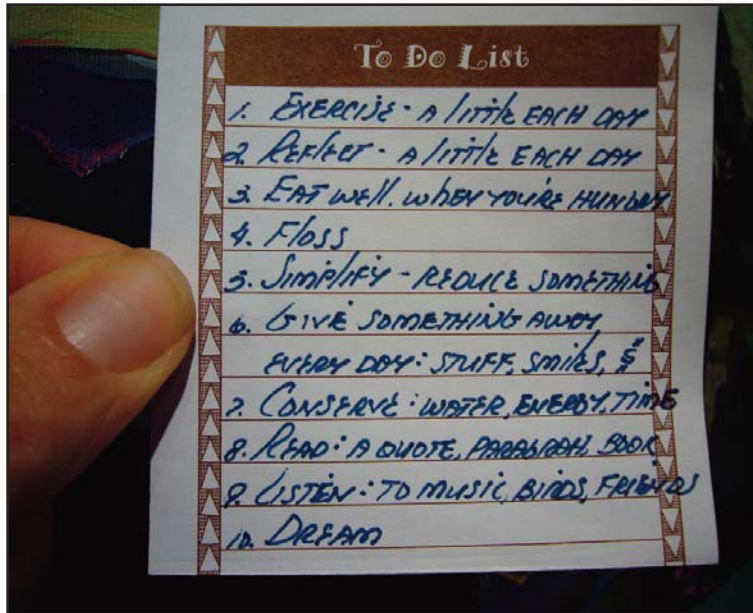 To Do List
1. EXERCISE - A little EACH DAY
2. REFlECT - A little EACH DAY
3. EAT well. whEN YOU'RE HUNGRY
4. Floss
5. SIMPlIFY - REDUCE SOMETHING
6. GIVE SOMETHING AWAY
EVERY DAY: STUFF, SmilES, $
7. CONSERVE: WATER, ENERGY, TIME
8. READ: A QUOTE, PARAGRAPH, BOOK
9. LISTEN: TO MUSIC, BIRDS, FRIENDS
10. DREAM